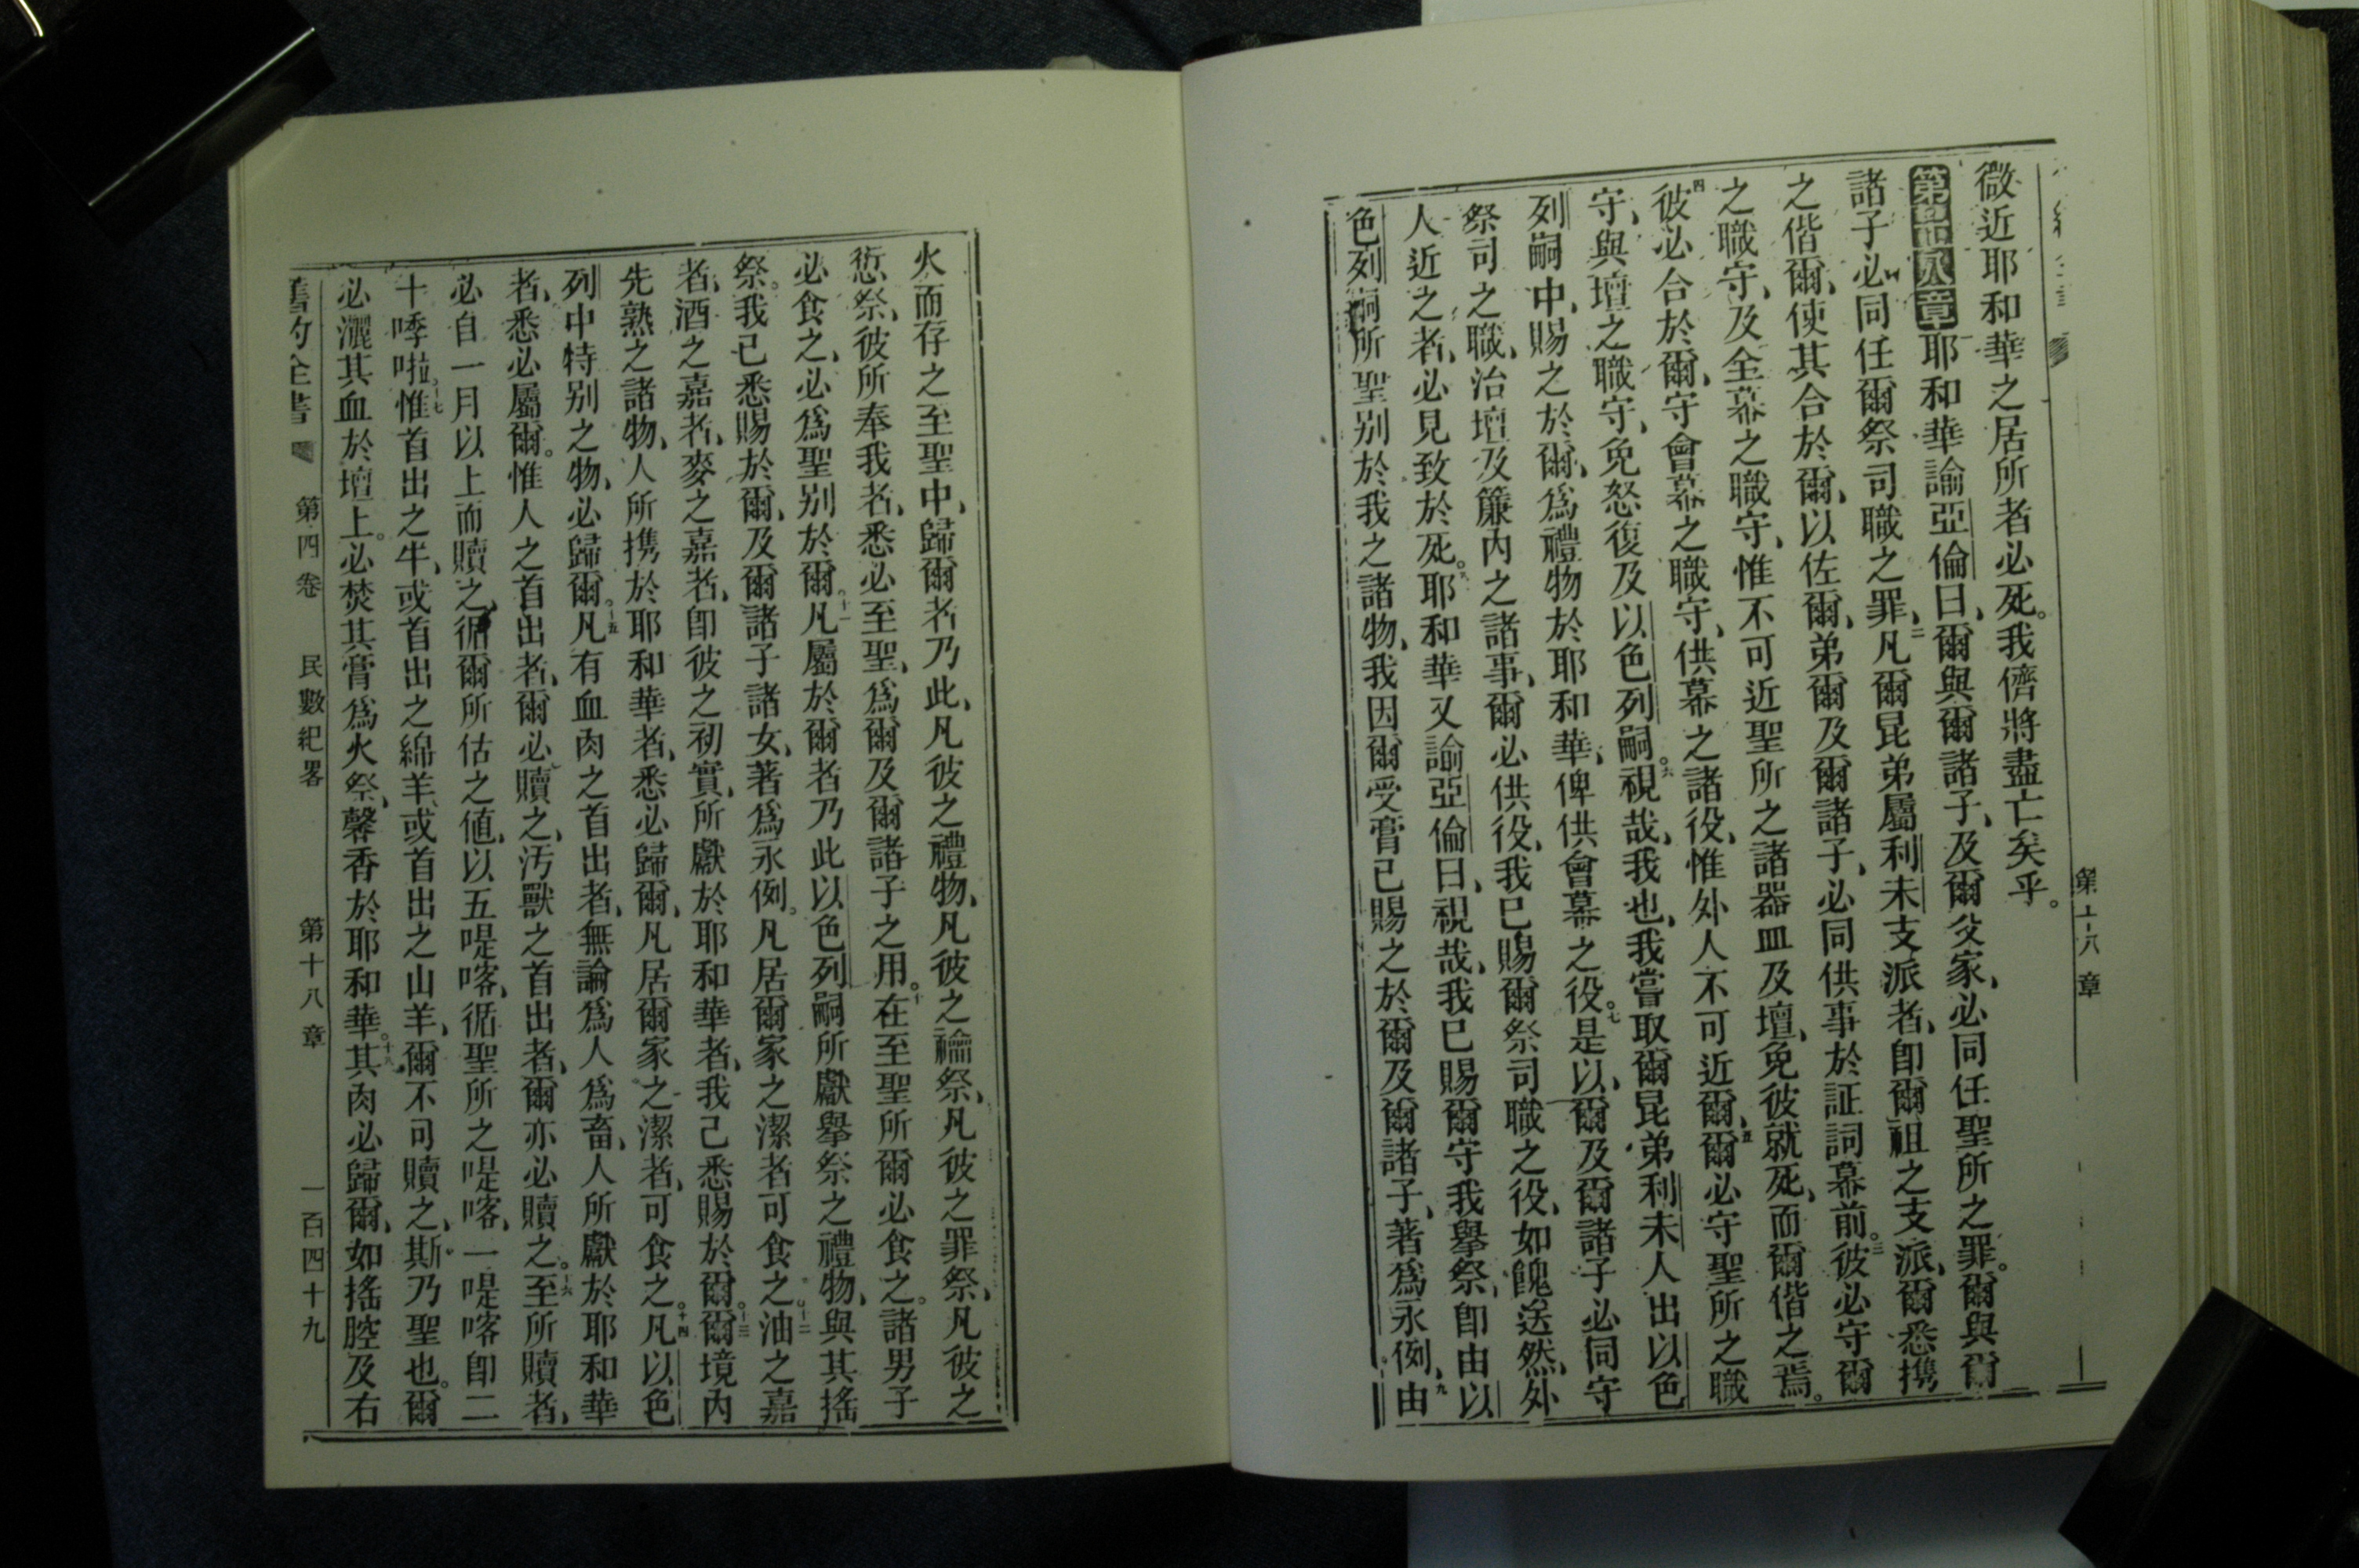 第十八章
微近耶和華之居所者必死。我儕將盡亡矣乎。
第十八章耶和華諭亞倫曰、爾與爾諸子、及爾父家、必同任聖所之罪。爾與爾
諸子必同任爾祭司職之罪、二凡爾昆弟屬利未支派者、卽爾祖之支派、爾悉携
之偕爾、使其合於爾、以佐爾、弟爾及爾諸子、必同供事於証詞幕前。三彼必守爾
之職守、及全幕之職守、惟不可近聖所之諸器皿及壇、免彼就死、而爾偕之焉。
四彼必合於爾、守會幕之職守、供幕之諸役、惟外人不可近爾、五爾必守聖所之職
守、與壇之職守、免怒復及以色列嗣。六視哉、我也、我嘗取爾昆弟利未人出以色
列嗣中、賜之於爾、爲禮物於耶和華、俾供會幕之役。七是以、爾及爾諸子必同守
祭司之職、治壇及簾內之諸事、爾必供役、我已賜爾祭司職之役、如餽送然、外
人近之者、必見致於死。八耶和華又諭亞倫曰、視哉、我已賜爾守我擧祭、卽由以
色列嗣所聖别於我之諸物、我因爾受膏已賜之於爾及爾諸子、著爲永例、九由
火而存之至聖中、歸爾者乃此、凡彼之禮物、凡彼之禴祭、凡彼之罪祭、凡彼之
愆祭、彼所奉我者、悉必至聖、爲爾及爾諸子之用。十在至聖所爾必食之。諸男子
必食之、必爲聖别於爾。十一凡屬於爾者乃此以色列嗣所獻擧祭之禮物、與其搖
祭。我已悉賜於爾、及爾諸子諸女、著爲永例。凡居爾家之潔者可食之。十二油之嘉
者、酒之嘉者、麥之嘉者、卽彼之初實、所獻於耶和華者、我已悉賜於爾。十三爾境內
先熟之諸物、人所携於耶和華者、悉必歸爾、凡居爾家之潔者、可食之。十四凡以色
列中特别之物、必歸爾。十五凡有血肉之首出者、無論爲人爲畜、人所獻於耶和華
者、悉必屬爾。惟人之首出者、爾必贖之、汚獸之首出者、爾亦必贖之。十六至所贖者、
必自一月以上而贖之、循爾所估之値、以五㖷喀、循聖所之㖷喀、一㖷喀卽二
十㖷啦。十七惟首出之牛、或首出之綿羊、或首出之山羊、爾不可贖之、斯乃聖也。爾
必灑其血於壇上。必焚其膏爲火祭、馨香於耶和華。十八其肉必歸爾、如搖腔及右
舊約全書 第四卷 民數紀畧 第十八章 一百四十九